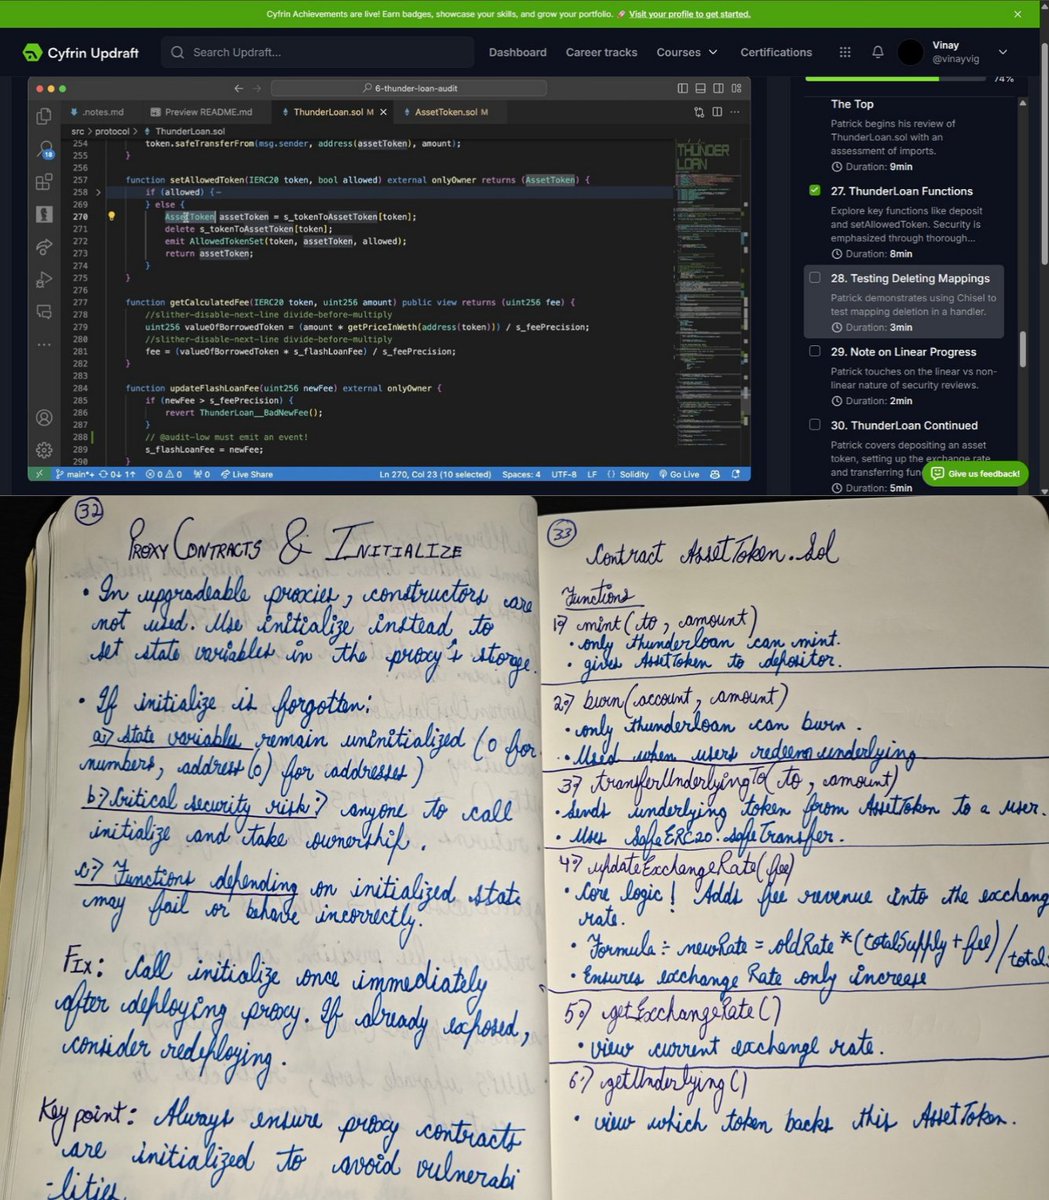 Cyfrin Achievements are live! Earn badges, showcase your skills, and grow your portfolio. 🚀 Visit your profile to get started.
Cyfrin Updraft
Search Updraft...
Dashboard
Career tracks
Courses
Certifications
Vinay
@vinayvig
6-thunder-loan-audit
.notes.md
Preview README.md
ThunderLoan.sol M
AssetToken.sol M
src > protocol > ThunderLoan.sol
254 token.safeTransferFrom(msg.sender, address(assetToken), amount);
255 }
256
257 function setAllowedToken(IERC20 token, bool allowed) external onlyOwner returns (AssetToken) {
258 if (allowed) {
269 } else {
270 AssetToken assetToken = s_tokenToAssetToken[token];
271 delete s_tokenToAssetToken[token];
272 emit AllowedTokenSet(token, assetToken, allowed);
273 return assetToken;
274 }
275 }
276
277 function getCalculatedFee(IERC20 token, uint256 amount) public view returns (uint256 fee) {
278 //slither-disable-next-line divide-before-multiply
279 uint256 valueOfBorrowedToken = (amount * getPriceInWeth(address(token))) / s_feePrecision;
280 //slither-disable-next-line divide-before-multiply
281 fee = (valueOfBorrowedToken * s_flashLoanFee) / s_feePrecision;
282 }
283
284 function updateFlashLoanFee(uint256 newFee) external onlyOwner {
285 if (newFee > s_feePrecision) {
286 revert ThunderLoan__BadNewFee();
287 }
288 // @audit-low must emit an event!
289 s_flashLoanFee = newFee;
290 }
THUNDER
LOAN
18
main*+ 0↓ 1↑ 0 0 0 Live Share
Ln 270, Col 23 (10 selected) Spaces: 4 UTF-8 LF {} Solidity Go Live
74%
The Top
Patrick begins his review of
ThunderLoan.sol with an
assessment of imports.
Duration: 9min
27. ThunderLoan Functions
Explore key functions like deposit
and setAllowedToken. Security is
emphasized through thorough...
Duration: 8min
28. Testing Deleting Mappings
Patrick demonstrates using Chisel to
test mapping deletion in a handler.
Duration: 3min
29. Note on Linear Progress
Patrick touches on the linear vs non-
linear nature of security reviews.
Duration: 2min
30. ThunderLoan Continued
Patrick covers depositing an asset
token, setting up the exchange rate
and transferring fun
Duration: 5min
Give us feedback!
32
PROXY CONTRACTS & INITIALIZE
• In upgradeable proxies, constructors are
not used. Use initialize instead, to
set state variables in the proxy's storage.
• If initialize is forgotten:
a) state variables remain uninitialized (0 for
numbers, address(0) for addresses)
b) Critical security risk: anyone to call
initialize and take ownership.
c) Functions depending on initialized state
may fail or behave incorrectly.
FIX: Call initialize once immediately
after deploying proxy. If already exposed,
consider redeploying.
Key point: Always ensure proxy contracts
are initialized to avoid vulnerabi
-lities
33
Contract AssetToken.sol
Functions
1) mint(to, amount)
• only thunderloan can mint.
• gives AssetToken to depositor.
2) burn(account, amount)
• only thunderloan can burn.
• Used when users redeem underlying
3) transferUnderlyingTo(to, amount)
• Sends underlying token from AssetToken to a user.
• Uses SafeERC20.safeTransfer.
4) updateExchangeRate(fee)
• Core logic! Adds fee revenue into the exchang
rate.
• Formula ÷ newRate = oldRate * (totalSupply + fee) / total
• Ensures exchange Rate only increase
5) getExchangeRate()
• view current exchange rate.
6) getUnderlying()
• view which token backs this AssetToken.